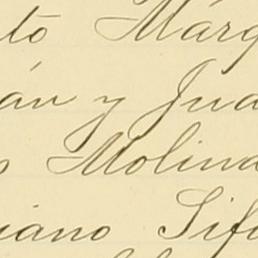 to Márq
án y Jua
o Molina
iano Sifu